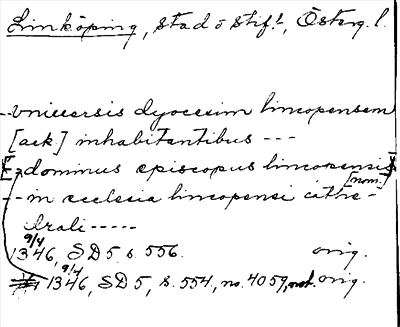 Linköping, stad o stift, Österg. l.
-- vniuersis dyocesim lincopensem
[ack] inhabitantibus ---
[- dominus episcopus lincopensis
[nom.]
-- in ecclesia lincopensi cathe-
drali -----
9/4
1346, SD 5 s. 556. orig.
9/4
1346, SD 5, s. 554, no. 4059, orig.